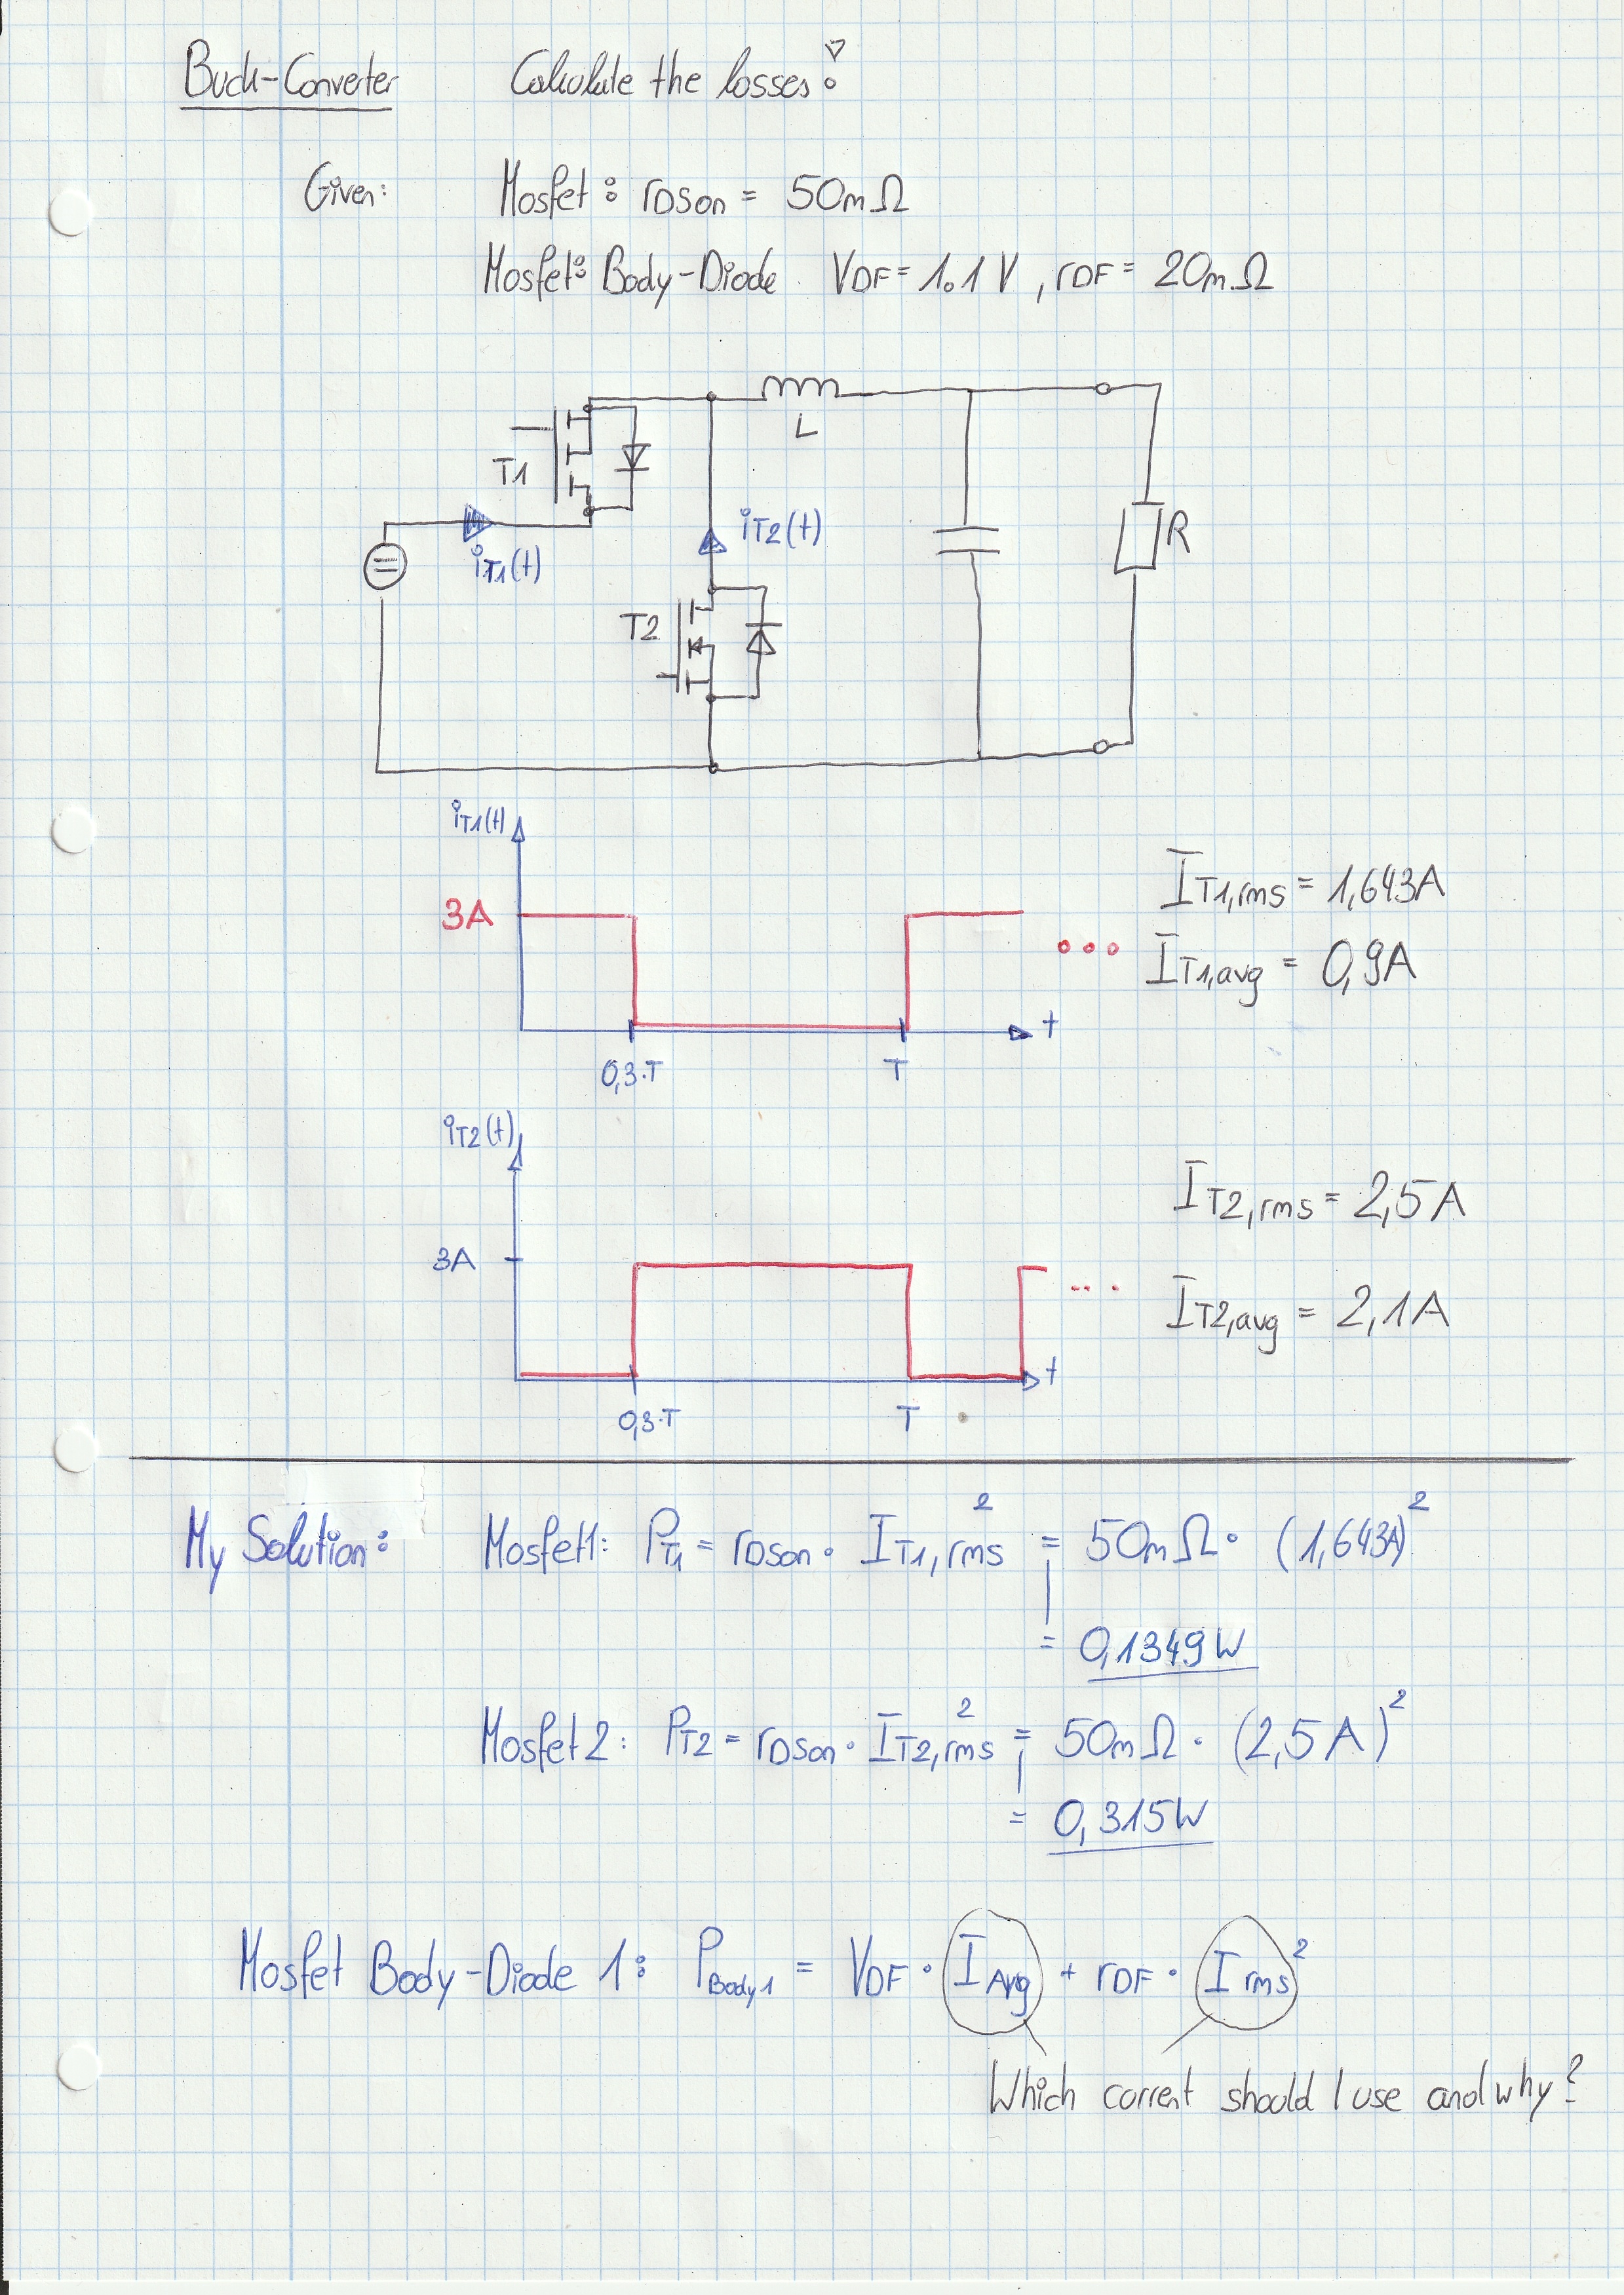 Buck-Converter Calculate the losses!
Given: Mosfet: rDSon = 50mΩ
Mosfet: Body-Diode VDF = 1.1V, rDF = 20mΩ
L
T1
iT1(t)
iT2(t)
R
T2
iT1(t)
3A
IT1,rms = 1,643A
IT1,avg = 0,9A
t
0,3·T T
iT2(t)
IT2,rms = 2,5A
3A
IT2,avg = 2,1A
t
0,3·T T
My Solution: Mosfet1: PT1 = rDSon · IT1,rms² = 50mΩ · (1,643A)²
= 0,1349W
Mosfet 2: PT2 = rDSon · IT2,rms² = 50mΩ · (2,5A)²
= 0,315W
Mosfet Body-Diode 1: PBody1 = VDF · IAvg + rDF · Irms²
Which corrent should I use and why?